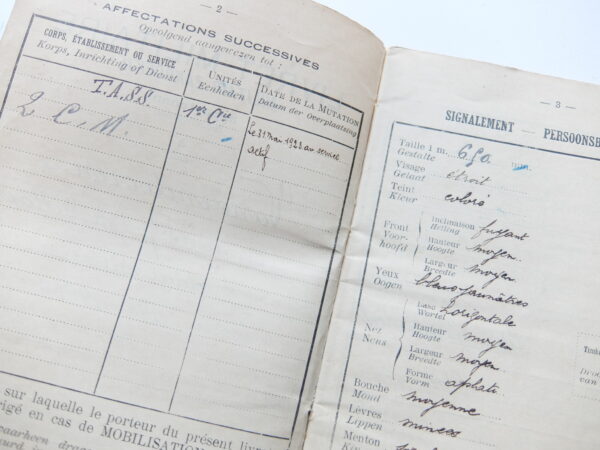 — 2 —
AFFECTATIONS SUCCESSIVES
Opvolgend aangewezen tot :
CORPS, ÉTABLISSEMENT OU SERVICE
Korps, Inrichting of Dienst
UNITÉS
Eenheden
DATE DE LA MUTATION
Datum der Overplaatsing
T.A.S.S.
2 C. M.
1re Cie
Le 31 Mai 1923 au service
actif
sur laquelle le porteur du présent
rigé en cas de MOBILISATION
— 3 —
SIGNALEMENT — PERSOONSB
Taille 1 m. 650 mm.
Gestalte
Visage étroit
Gelaat
Teint coloré
Kleur
Front
Voor-
hoofd
Inclinaison fuyant
Helling
Hauteur moyen.
Hoogte
Largeur moyen
Breedte
Yeux bleus jaunâtres
Oogen
Nez
Neus
Base horizontale
Wortel
Hauteur moyen
Hoogte
Largeur moyen.
Breedte
Forme aplati
Vorm
Bouche moyenne
Mond
Lèvres minces
Lippen
Menton
Kin